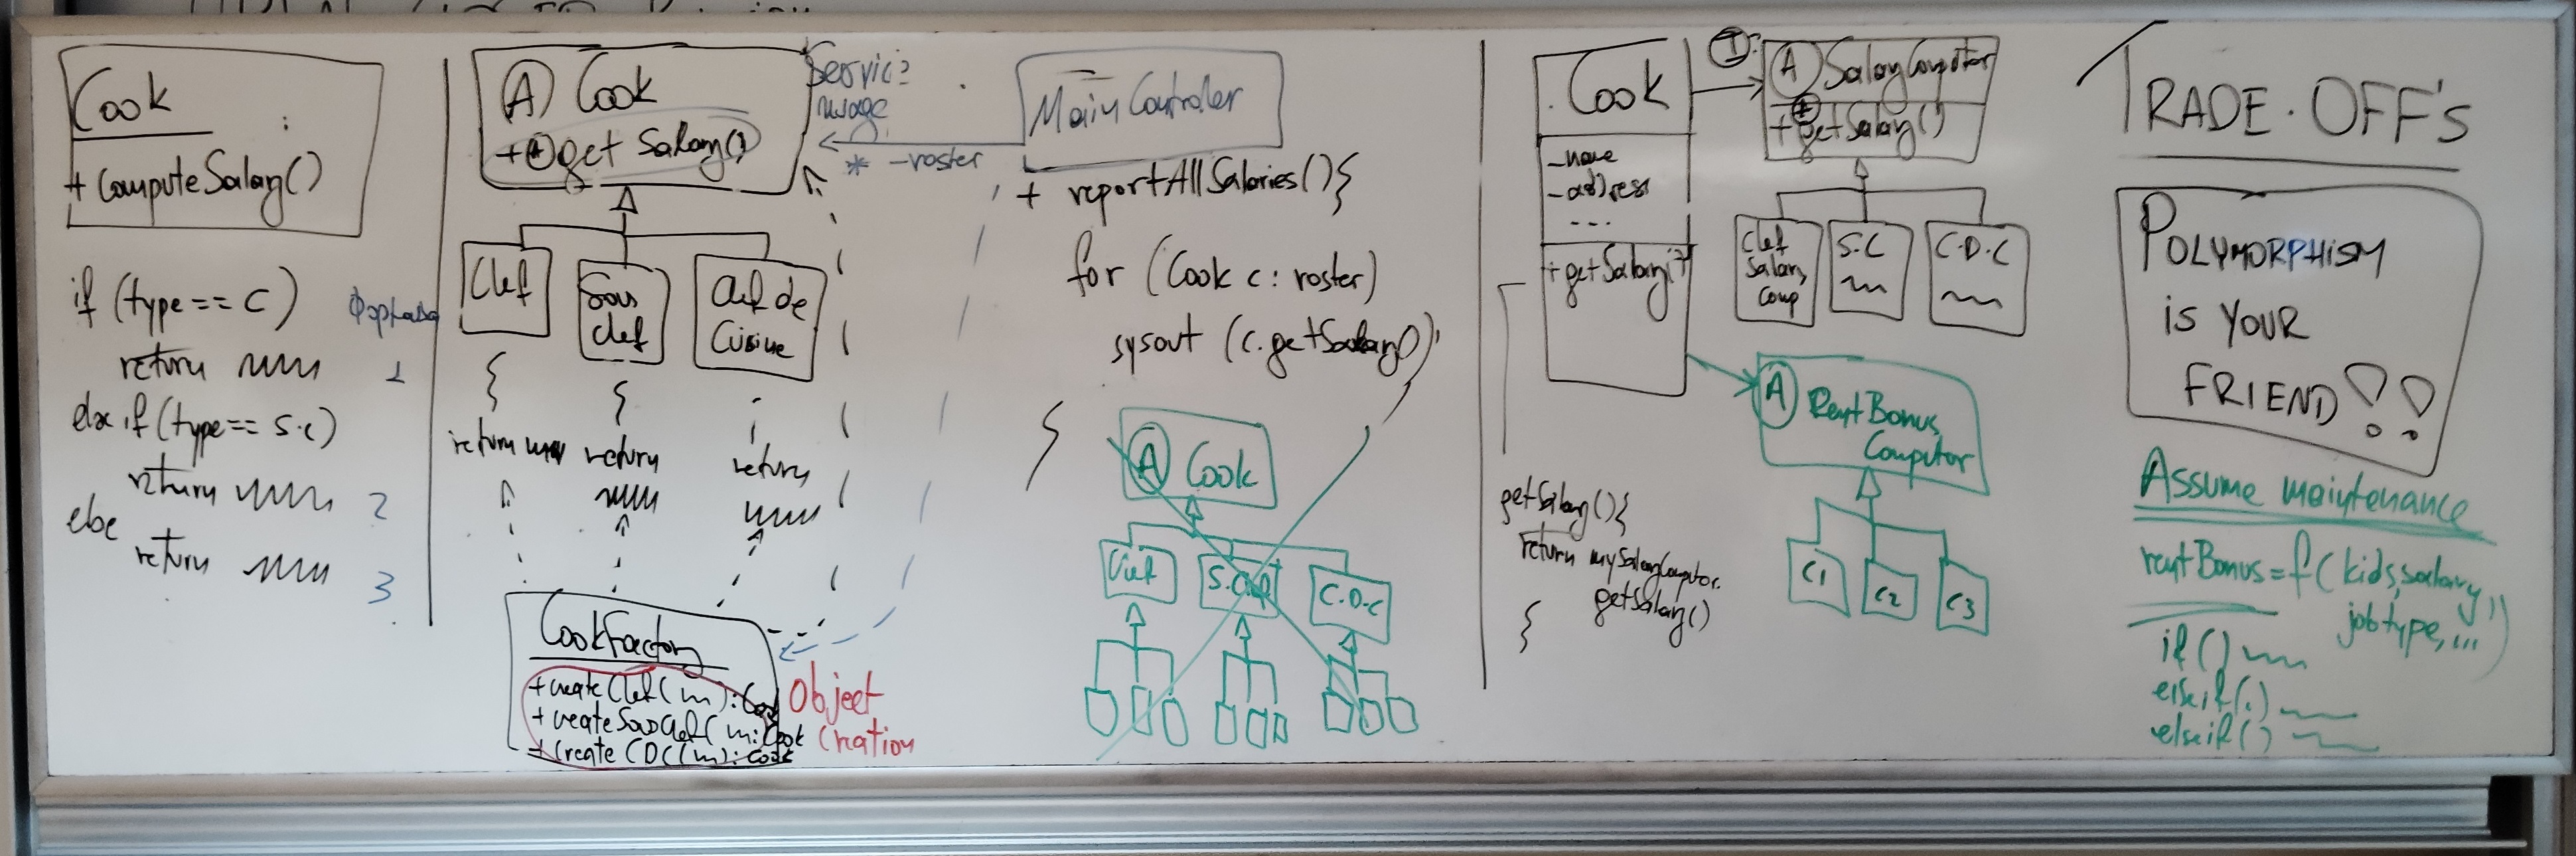 Cook
+ computeSalary()
if (type == C)
return
1
else if (type == S.C)
return
2
else
return
3
A Cook
+ A getSalary()
Clef
Sous
Clef
Clef de
Cuisine
{
return
{
return
return
CookFactory
+ create Clef( ):Cook
+ create SousClef( ):Cook
+ create CDC( ):Cook
Object
Creation
Service
usage
* -roster
Main Controler
+ reportAllSalaries(){
for (Cook c : roster)
sysout (c.getSalary())
}
A Cook
Clef
S.C
C.D.C
Cook
-name
-address
...
+ getSalary()
1
A SalaryComputor
+ A getSalary()
Clef
Salary
Comp
S.C
C.D.C
A RentBonus
Computor
C1
C2
C3
getSalary(){
return mySalaryComputor.
getSalary()
}
TRADE-OFF's
POLYMORPHISM
is YOUR
FRIEND!!
Assume maintenance
rentBonus = f(kids, salary,
jobtype, ...)
if()
elseif()
elseif()